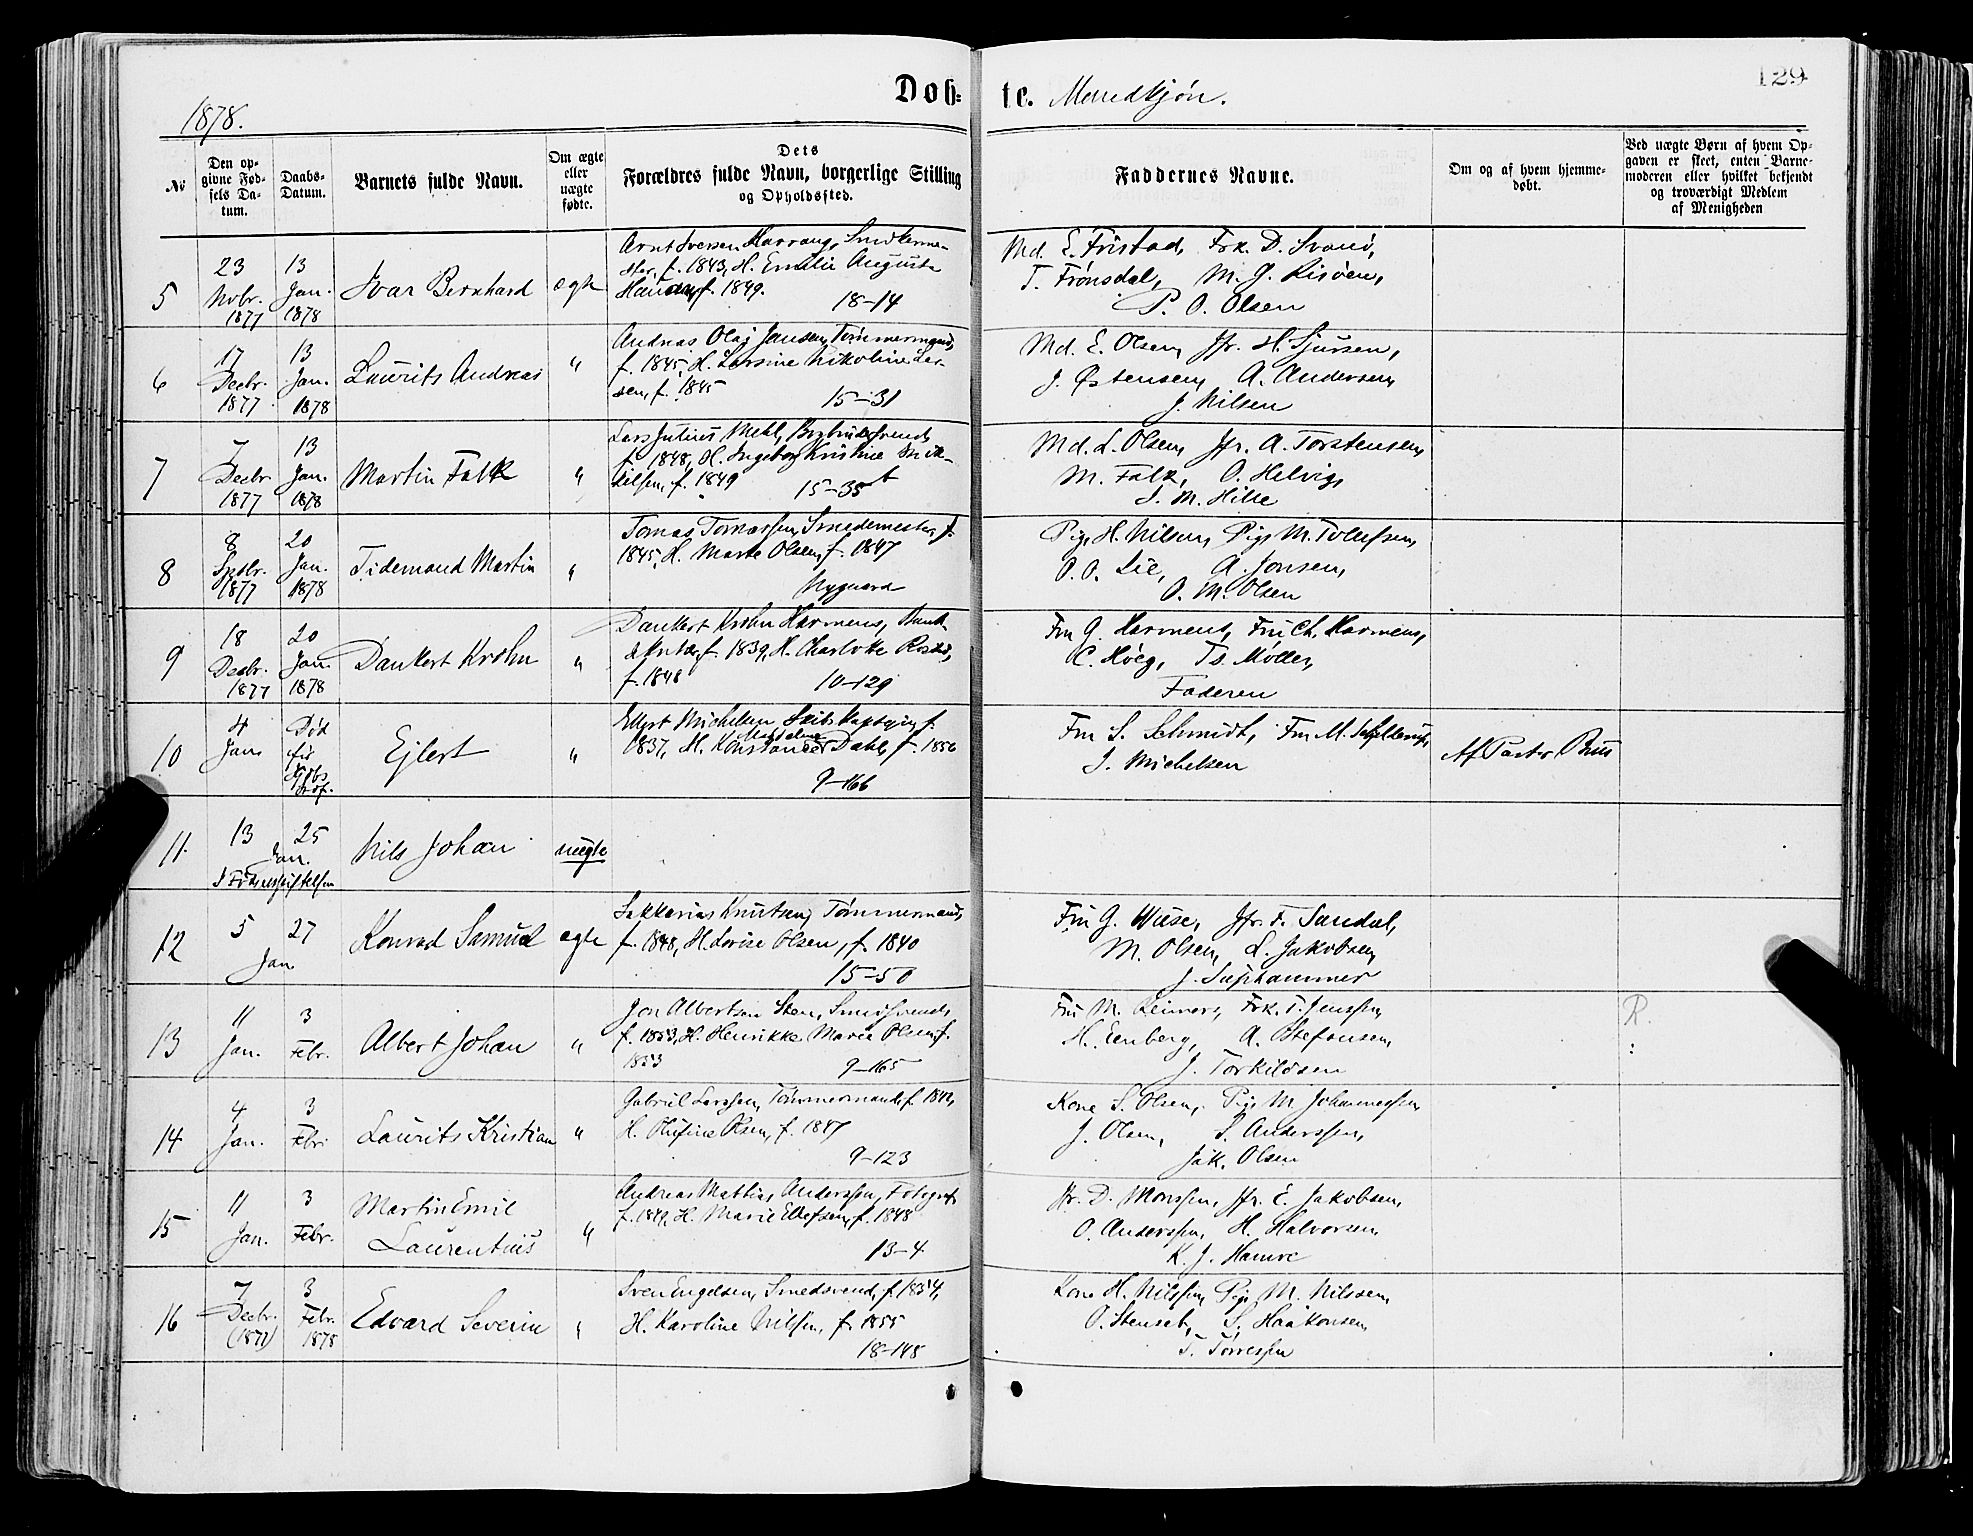 1878.
Døb:
te. Mandkjøn.
129
No
Den op-
givne Fød-
sels Da-
tum.
Daabs-
Datum.
Barnets fulde Navn.
Om ægte
eller
uægte
fødte.
Dets
Forældres fulde Navn, borgerlige Stilling
og Opholdssted.
Faddernes Navne.
Om og af hvem hjemme-
døbt.
Ved uægte Børn af hvem Op-
gaven er skeet, enten Barne-
moderen eller hvilket bekjendt
og troværdigt Medlem
af Menigheden
5
23
Novbr.
1877
13
Jan.
1878
Ivar Bernhard
ægte
Arnt Iversen Harrang,
f. 1843, H. Emilie Augusta
f. 1849.
18-14
Md. E. Fristad, Frk. D. Svanø,
T. Frønsdal, M. J. Risøen,
P. O. Olsen
6
17
Decbr.
1877
13
Jan.
1878
Laurits Andreas
"
Andreas Olaj Jansen, Tømmermand,
f. 1845, H. Larsine Nikoline Lar-
sen, f. 1845
15-31
Md. E. Olsen, Jfr. H. Sjursen,
J. Østensen, A. Andersen,
J. Nilsen
7
7
Decbr
1877
13
Jan.
1878
Martin Falk
"
Lars Julius Mehl,
f. 1848, H. Ingeborg Kristine Mik-
kelsen, f. 1849
15-35
Md. L. Olsen, Jfr. A. Torstensen,
M. Falk, O. Helvig,
S. M. Hille
8
8
Septbr.
1877
20
Jan.
1878
Tidemand Martin
"
Tomas Tomassen, Smedemester, f.
1845, H. Marte Olsen, f. 1847
Nygaard
Pige H. Nilsen, Pige M. Tollefsen,
O. O. Lie, A. Jonsen,
O. M. Olsen
9
18
Decbr.
1877
20
Jan.
1878
Dankert Krohn
"
Dankert Krohn Harmens,
f. 1839, H. Charlotte
f. 1848
10-129
Fru G. Harmens, Fru Ch. Harmens,
C. Høeg, Ts. Møller,
Faderen
10
4
Jan.
Død
før
Ejlert
"
Ejlert Michelsen, Skibskaptejn, f.
1837, H. Konstance Dahl, f. 1856
9-166
Fru S. Schmidt, Fru M.
J. Michelsen
Af Pastor
11.
13
25
Jan.
I Fødselsstiftelsen
Nils Johan
uægte
12
5
27
Jan
Konrad Samuel
ægte
Sakkarias Knutsen, Tømmermand,
f. 1848, H. Lovise Olsen, f. 1840
15-50
Fru G. Wiese, Jfr. F. Sandal,
M. Olsen, L. Jakobsen,
J.
13
11
Jan.
3
Febr.
Albert Johan
"
Jon Albertsen Sten, Smedsvend,
f. 1853, H. Henrikke Marie Olsen, f.
1853
9-165
Fru M. Reimers, Frk. T. Jenssen,
H. Eenberg, A. Stefansen,
J. Torkildsen
R.
:
14
4
Jan.
3
Febr.
Laurits Kristian
"
Gabriel Larssen, Tømmermand, f.
H. Olufine Olsen, f. 1847
9-123
Kone S. Olsen, Pige M. Johannessen,
J. Olsen, S. Anderssen,
Jak. Olsen
15
11
Jan.
3
Febr.
Martin Emil
Laurentius
"
Andreas Mathias Anderssen, Fotograf,
f. 1849, H. Marie Ellefsen, f. 1848
13-4
Jfr. D. Monssen, Jfr. E. Jakobsen,
O. Anderssen, H. Halvorsen,
K. J. Hamre
16
7
Decbr.
(1877)
3
Febr.
1878
Edvard Severin
"
Sven Engelsen, Smedsvend, f. 1854,
H. Karoline Nilsen, f. 1855
18-148
Kone H. Nilssen, Pige M. Nilssen,
O. Stenseb, S. Haakonsen,
T. Tørressen